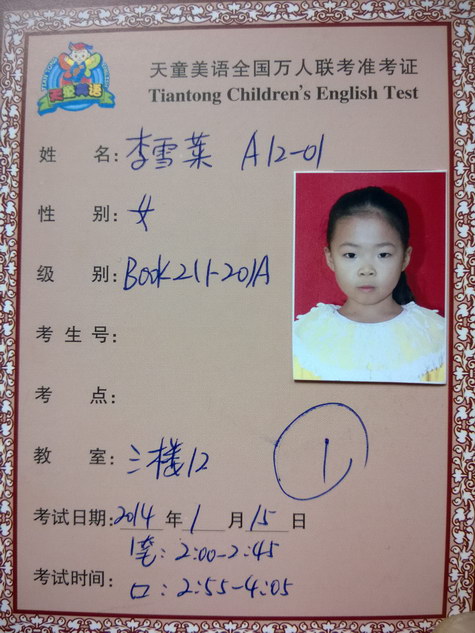 天童美语
天童美语全国万人联考准考证
Tiantong Children's English Test
姓 名: 李雪菜 A12-01
性 别: 女
级 别: Book2(1-20)A
考 生 号:
考 点:
教 室: 三楼12
1
考试日期: 2014 年 1 月 15 日
笔: 2:00-2:45
考试时间:
口: 2:55-4:05